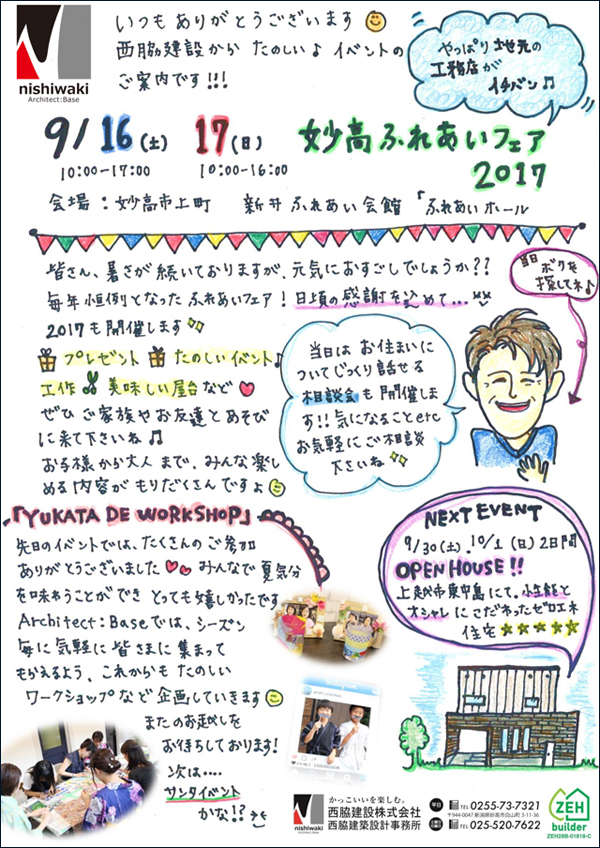 nishiwaki
Architect:Base
いつもありがとうございます
西脇建設から たのしい♪ イベントの
ご案内です!!!
やっぱり地元の
工務店が
イチバン♫
9/16(土) 17(日)
10:00-17:00 10:00-16:00
妙高ふれあいフェア
2017
会場:妙高市上町 新井ふれあい会館「ふれあいホール
皆さん、暑さが続いておりますが、元気におすごしでしょうか??
毎年恒例となったふれあいフェア!日頃の感謝を込めて...
2017も開催します
プレゼント たのしいイベント♪
工作 美味しい屋台など
ぜひご家族やお友達とあそび
に来て下さいね♫
お子様から大人まで、みんな楽し
める内容がもりだくさんですよ
当日は お住まいに
ついてじっくり話せる
相談会も開催しま
す!!気になることetc
お気軽にご相談
下さいね
当日
ボクを
探してネ♪
「YUKATA DE WORKSHOP」
先日のイベントでは、たくさんのご参加
ありがとうございました みんなで夏気分
を味わうことができ とっても嬉しかったです
Architect:Baseでは、シーズン
毎に気軽に皆さまに集まって
もらえるよう、これからもたのしい
ワークショップなど企画していきます
またのお越しを
お待ちしております!
次は....
サンタイベント
かな!?
NEXT EVENT
9/30(土) 10/1(日)2日間
OPEN HOUSE!!
上越市東中島にて。小性能と
オシャレにこだわったゼロエネ
住宅☆☆☆☆☆
nishiwaki
Architect:Base
かっこいいを楽しむ。
西脇建設株式会社
西脇建築設計事務所
平日 TEL 0255-73-7321
〒944-0047 新潟県妙高市白山町 3-11-36
TEL 025-520-7622
ZEH
builder
ZEH28B-01818-C